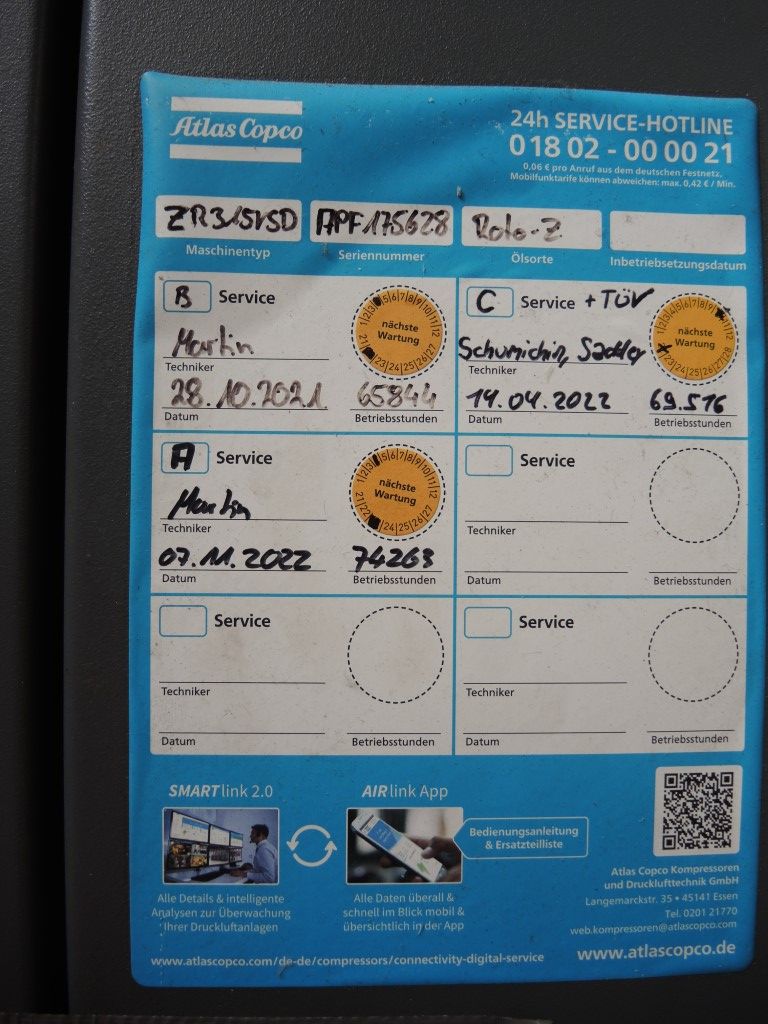 Atlas Copco
24h SERVICE-HOTLINE
0 18 02 - 00 00 21
0,06 € pro Anruf aus dem deutschen Festnetz.
Mobilfunktarife können abweichen: max. 0,42 € / Min.
ZR315VSD APF175628 Roto-Z
Maschinentyp Seriennummer Ölsorte Inbetriebsetzungsdatum
B Service
nächste Wartung
Martin
Techniker
28.10.2021 65844
Datum Betriebsstunden
C Service + TÜV
nächste Wartung
Techniker
14.04.2022 69.516
Datum Betriebsstunden
A Service
nächste Wartung
Martin
Techniker
07.11.2022 74263
Datum Betriebsstunden
Service
Techniker
Datum Betriebsstunden
Service
Techniker
Datum Betriebsstunden
Service
Techniker
Datum Betriebsstunden
SMARTlink 2.0
Alle Details & intelligente
Analysen zur Überwachung
Ihrer Druckluftanlagen
AIRlink App
Alle Daten überall &
schnell im Blick mobil &
übersichtlich in der App
Bedienungsanleitung
& Ersatzteilliste
Atlas Copco Kompressoren
und Drucklufttechnik GmbH
Langemarckstr. 35 • 45141 Essen
Tel. 0201 21770
web.kompressoren@atlascopco.com
www.atlascopco.com/de-de/compressors/connectivity-digital-service
www.atlascopco.de